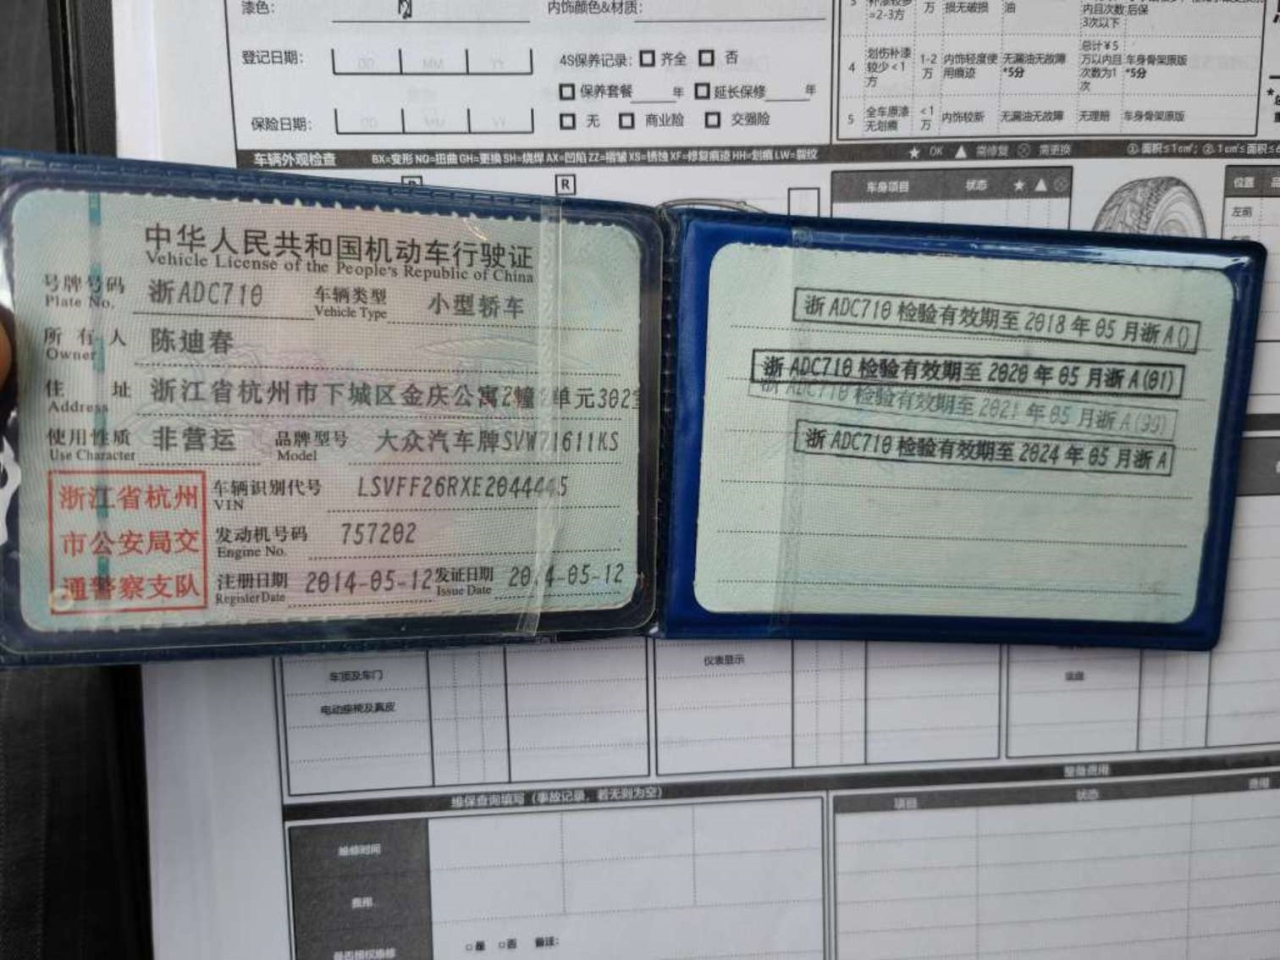 漆色:
内饰颜色&材质:
登记日期:
4S保养记录: 齐全 否
保养套餐 年 延长保修 年
保险日期:
无 商业险 交强险
=2-3方
万
损无破损
油
内且次数
3次以下
后保
4
划伤补漆较少<1方
1-2万
内饰轻度使用痕迹
无漏油无故障*5分
总计¥5万以内且次数为1次
车身骨架原版*5分
5
全车原漆无划痕
<1万
内饰较新
无漏油无故障
无理赔
车身骨架原版
车辆外观检查
BX=变形 NQ=扭曲 GH=更换 SH=烧焊 AX=凹陷 ZZ=褶皱 XS=锈蚀 XF=修复痕迹 HH=划痕 LW=裂纹
★ OK ▲ 需修复 需更换
R
车身项目 状态 ★ ▲
位置
左前
中华人民共和国机动车行驶证
Vehicle License of the People's Republic of China
号牌号码 浙ADC710 车辆类型 小型轿车
Plate No. Vehicle Type
所有人 陈迪春
Owner
住址 浙江省杭州市下城区金庆公寓2幢 单元302
Address
使用性质 非营运 品牌型号 大众汽车牌SVW71611KS
Use Character Model
浙江省杭州
市公安局交
通警察支队
车辆识别代号 LSVFF26RXE2044445
VIN
发动机号码 757202
Engine No.
注册日期 2014-05-12 发证日期 2014-05-12
Register Date Issue Date
浙ADC710检验有效期至2018年05月浙A()
浙ADC710检验有效期至2020年05月浙A(01)
浙ADC710检验有效期至2021年05月浙A(99)
浙ADC710检验有效期至2024年05月浙A
车顶及车门
仪表显示
底盘
电动座椅及真皮
维保查询填写(事故记录,若无则为空)
整备费用
项目 状态 费用
维修时间
费用
是否授权维修
是 否 备注: